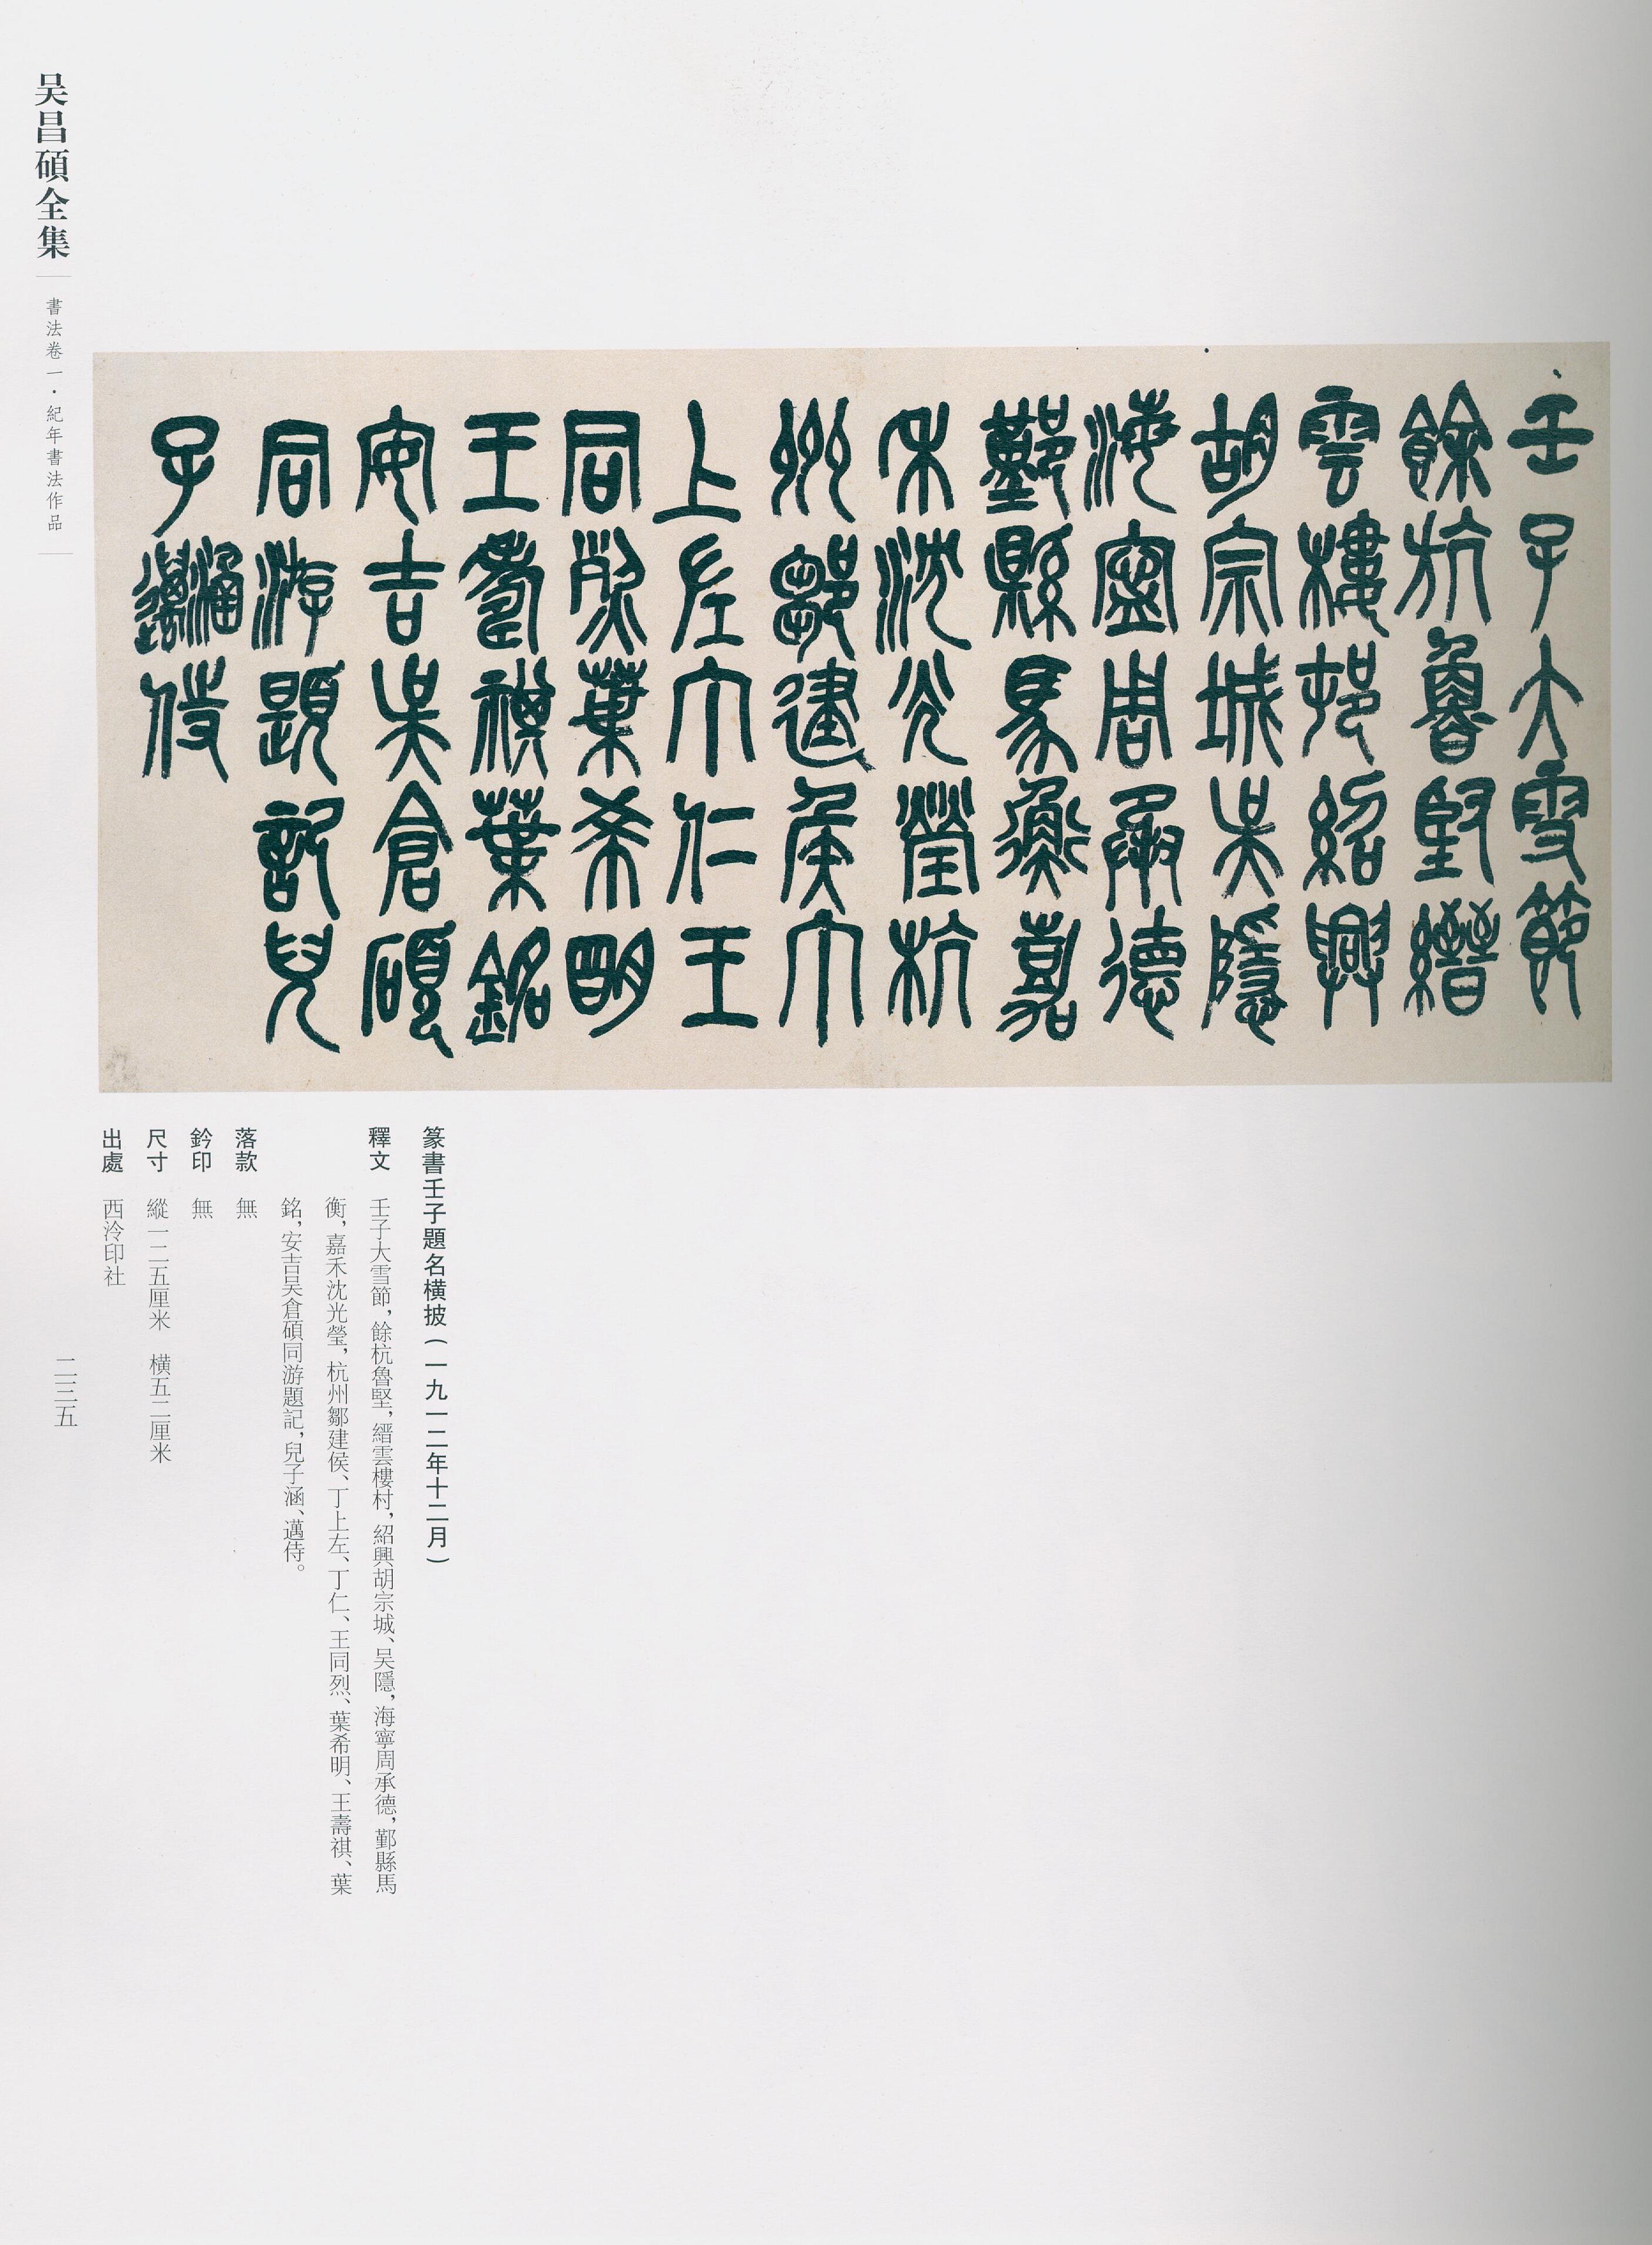 吴昌碩全集
書法卷一·紀年書法作品
壬子大雪節
餘杭魯堅縉
雲樓邨紹興
胡宗城吴隱
海寍周承德
鄞縣馬衡嘉
禾沈光瑩杭
州鄒建矦丁
上左丁仁王
同烈葉希明
王壽祺葉銘
安吉吴倉碩
同游題記兒
子涵邁侍
篆書壬子題名横披(一九一二年十二月)
釋文 壬子大雪節,餘杭魯堅,縉雲樓村,紹興胡宗城、吴隱,海寧周承德,鄞縣馬
衡,嘉禾沈光瑩,杭州鄒建侯、丁上左、丁仁、王同烈、葉希明、王壽祺、葉
銘,安吉吴倉碩同游題記,兒子涵、邁侍。
落款 無
鈐印 無
尺寸 縱一二五厘米 横五二厘米
出處 西泠印社
二三五